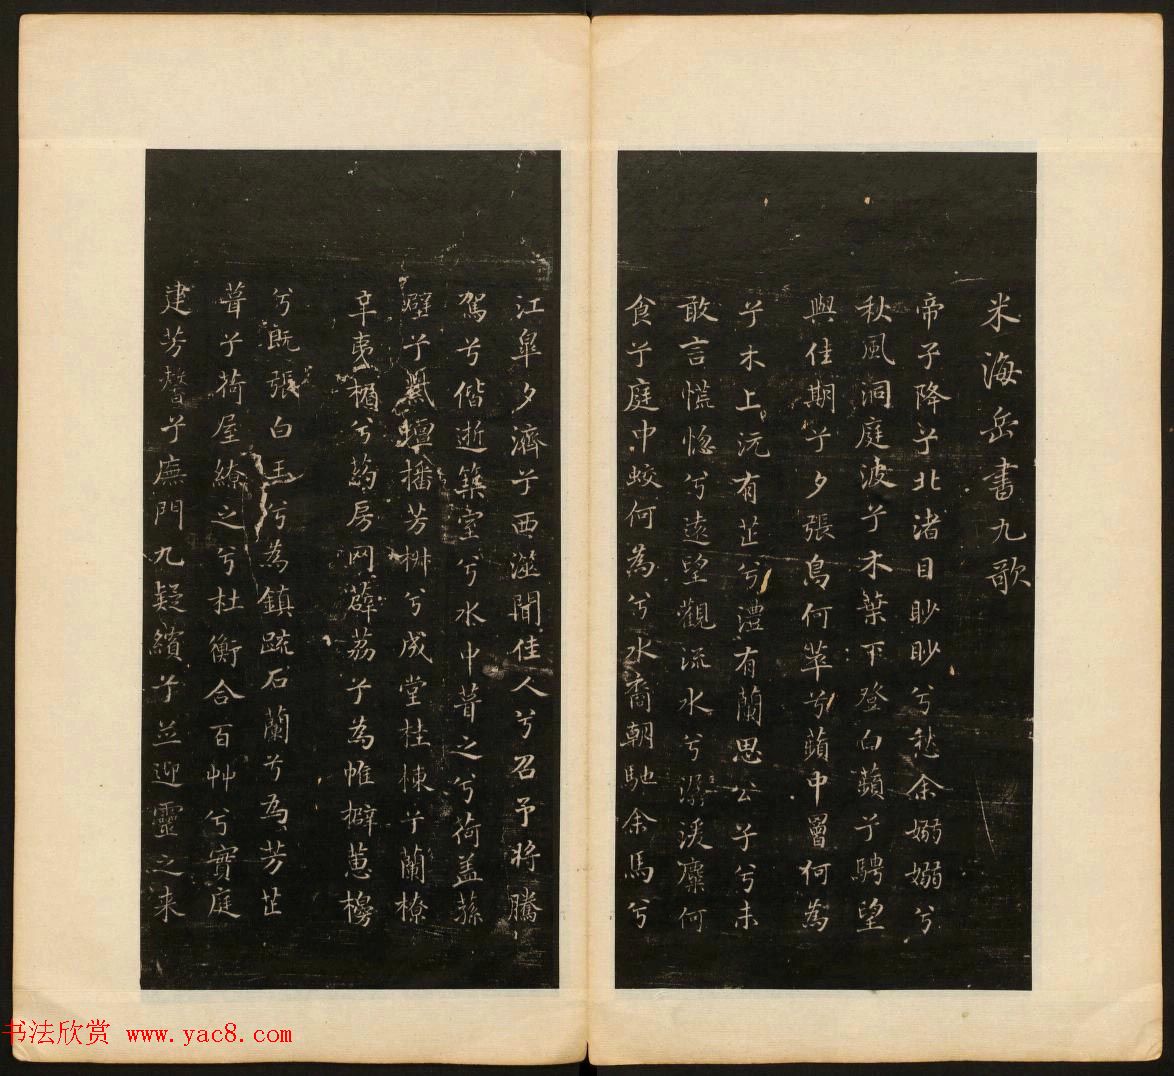 米海岳書九歌
帝子降兮北渚目眇眇兮愁余嫋嫋兮
秋風洞庭波兮木葉下登白蘋兮騁望
與佳期兮夕張鳥何萃兮蘋中罾何為
兮木上沅有芷兮澧有蘭思公子兮未
敢言慌惚兮遠望觀流水兮潺湲麋何
食兮庭中蛟何為兮水裔朝馳余馬兮
江皋夕濟兮西澨聞佳人兮召予將騰
駕兮偕逝築室兮水中葺之兮荷盖蓀
壁兮紫壇播芳椒兮成堂桂棟兮蘭橑
辛夷楣兮葯房网薜荔兮為帷擗蕙櫋
兮既張白玉兮為鎮疏石蘭兮為芳芷
葺兮荷屋繚之兮杜衡合百艸兮實庭
建芳馨兮廡門九疑繽兮並迎靈之来
书法欣赏 www.yac8.com